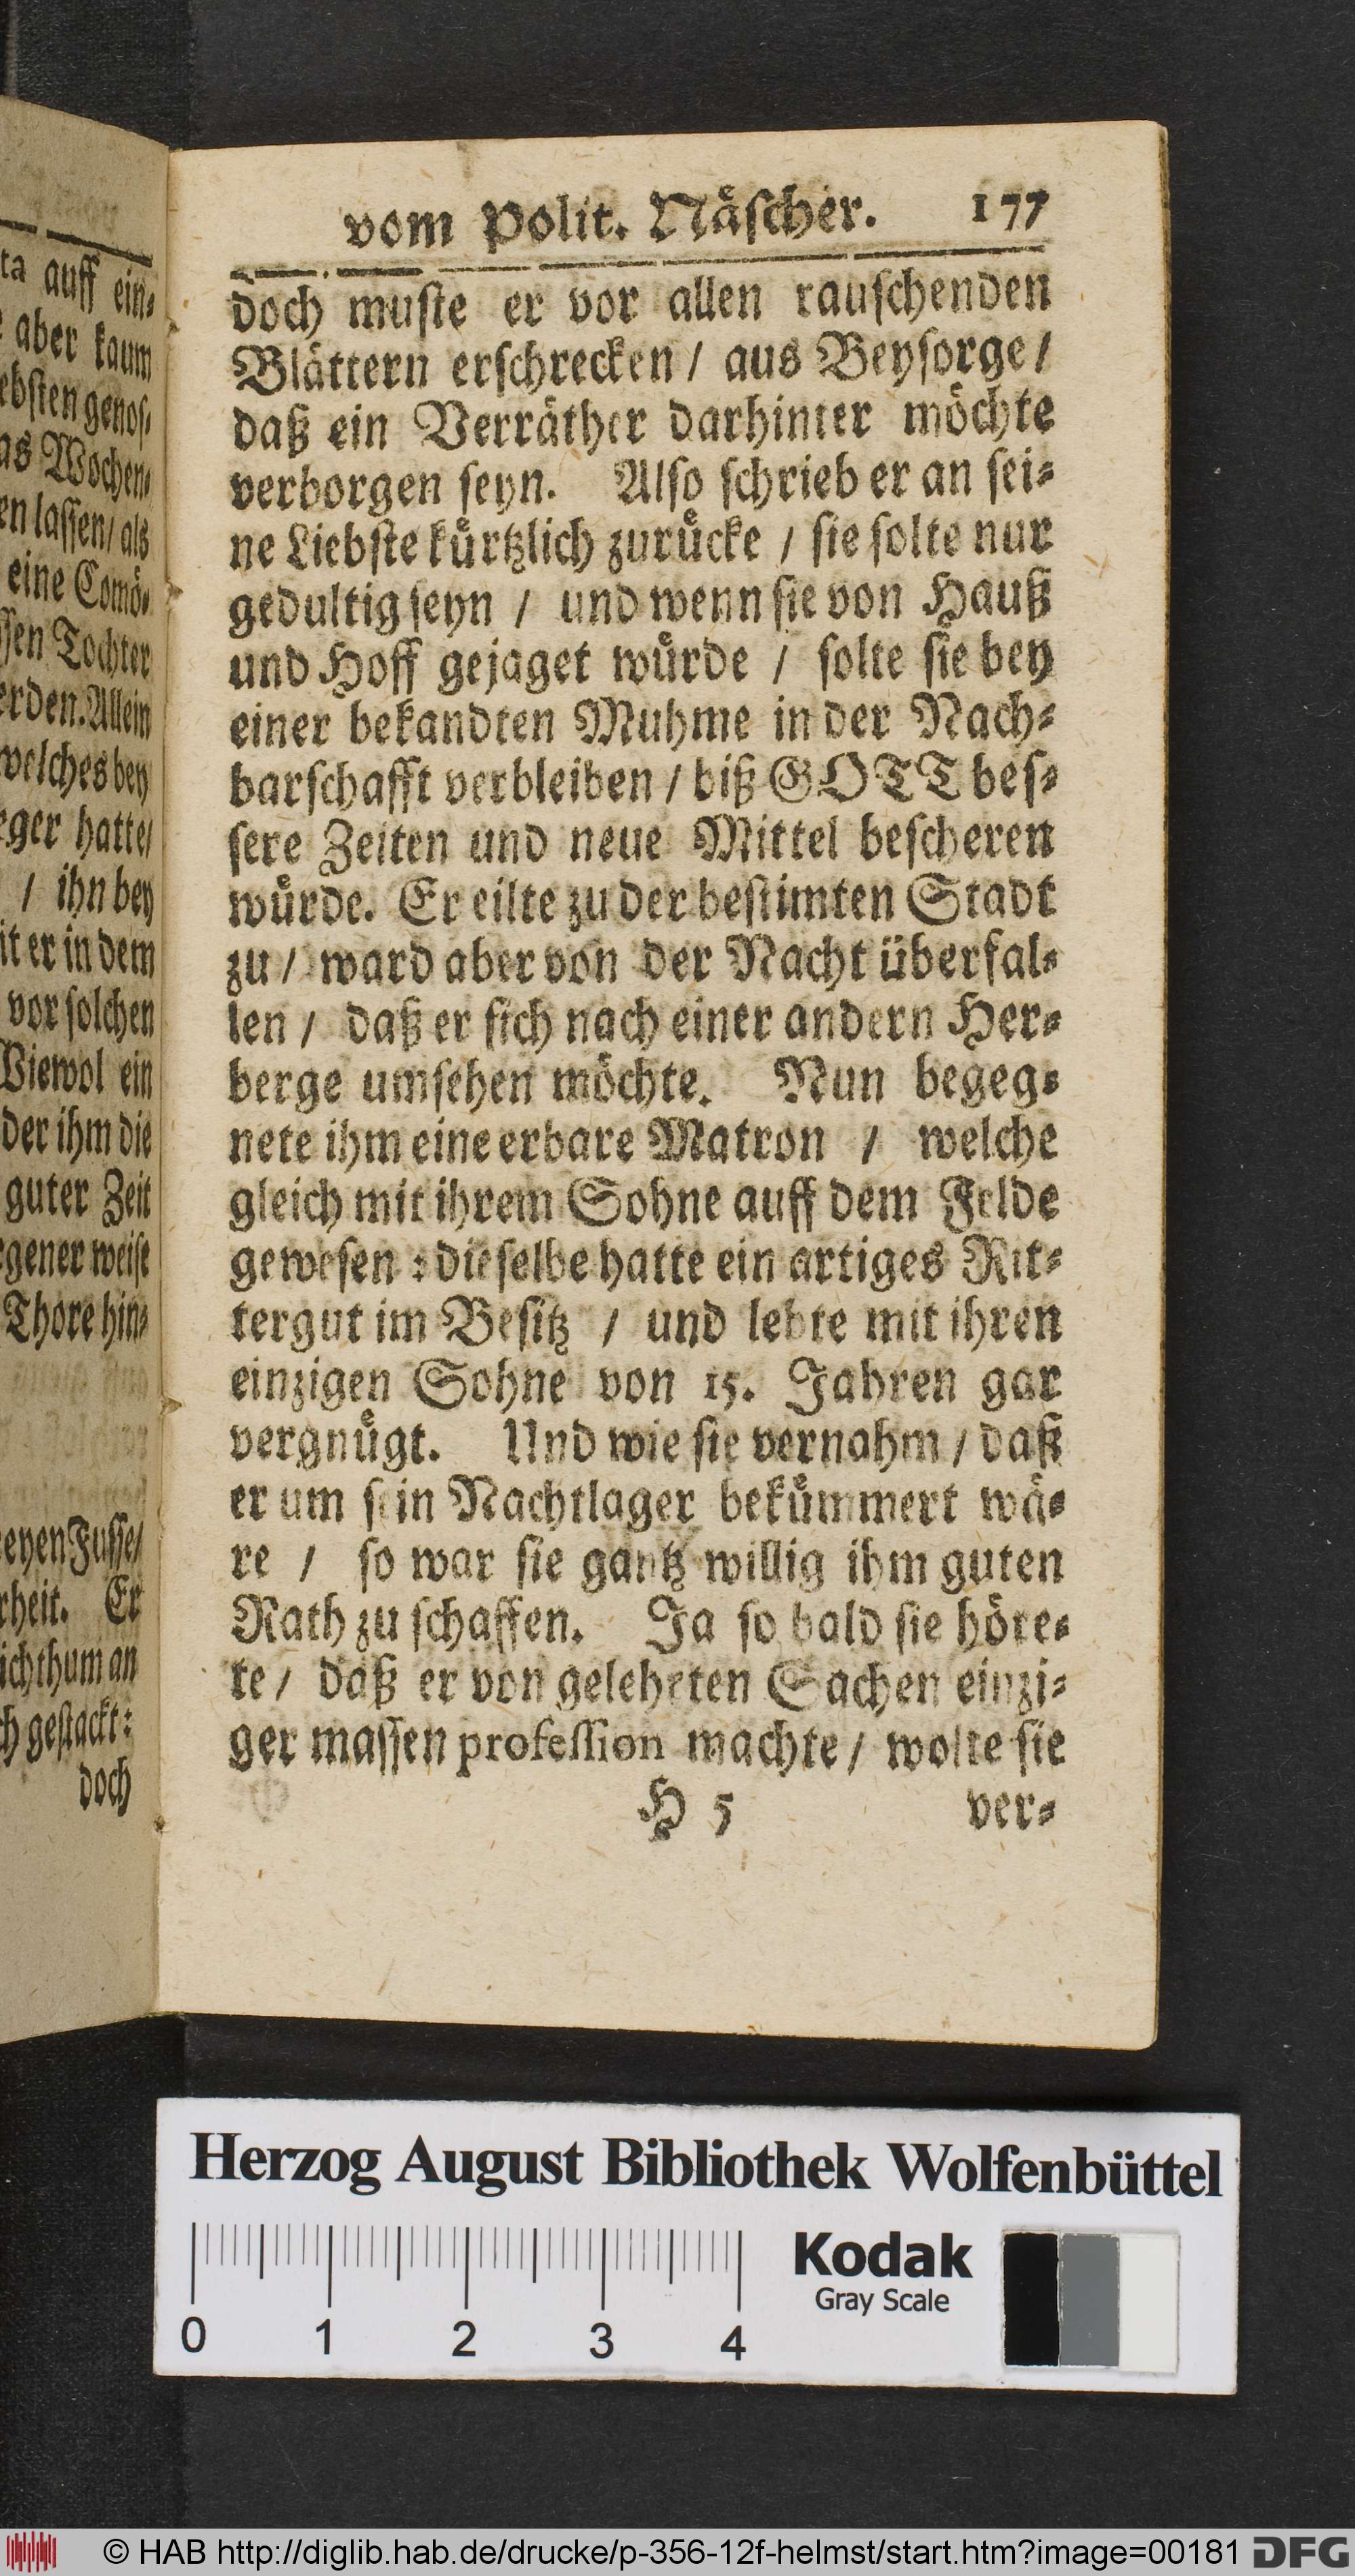 ta auff ein⸗
aber kaum
ebsten genos⸗
as Wochen⸗
en lassen/ als
eine Comö⸗
ssen Tochter
erden. Allein
welches bey
eger hatte/
/ ihn bey
it er in dem
vor solchen
Wiewol ein
der ihm die
guter Zeit
rgener weise
Thore hin⸗
eyen Fusse/
rheit. Er
ichthum an
ch gestackt:
doch
vom Polit. Näscher. 177
doch muste er vor allen rauschenden
Blättern erschrecken / aus Beysorge /
daß ein Verräther darhinter möchte
verborgen seyn. Also schrieb er an sei⸗
ne Liebste kürtzlich zurücke / sie solte nur
gedultig seyn / und wenn sie von Hauß
und Hoff gejaget würde / solte sie bey
einer bekandten Muhme in der Nach⸗
barschafft verbleiben / biß GOTT bes⸗
sere Zeiten und neue Mittel bescheren
würde. Er eilte zu der bestimten Stadt
zu / ward aber von der Nacht überfal⸗
len / daß er sich nach einer andern Her⸗
berge umsehen möchte. Nun begeg⸗
nete ihm eine erbare Matron / welche
gleich mit ihrem Sohne auff dem Felde
gewesen : dieselbe hatte ein artiges Rit⸗
tergut im Besitz / und lebte mit ihren
einzigen Sohne von 15. Jahren gar
vergnügt. Und wie sie vernahm / daß
er um sein Nachtlager bekümmert wä⸗
re / so war sie gantz willig ihm guten
Rath zu schaffen. Ja so bald sie höre⸗
te / daß er von gelehrten Sachen einzi⸗
ger massen profession machte / wolte sie
H 5 ver⸗
Herzog August Bibliothek Wolfenbüttel
Kodak
Gray Scale
0 1 2 3 4
© HAB http://diglib.hab.de/drucke/p-356-12f-helmst/start.htm?image=00181 DFG